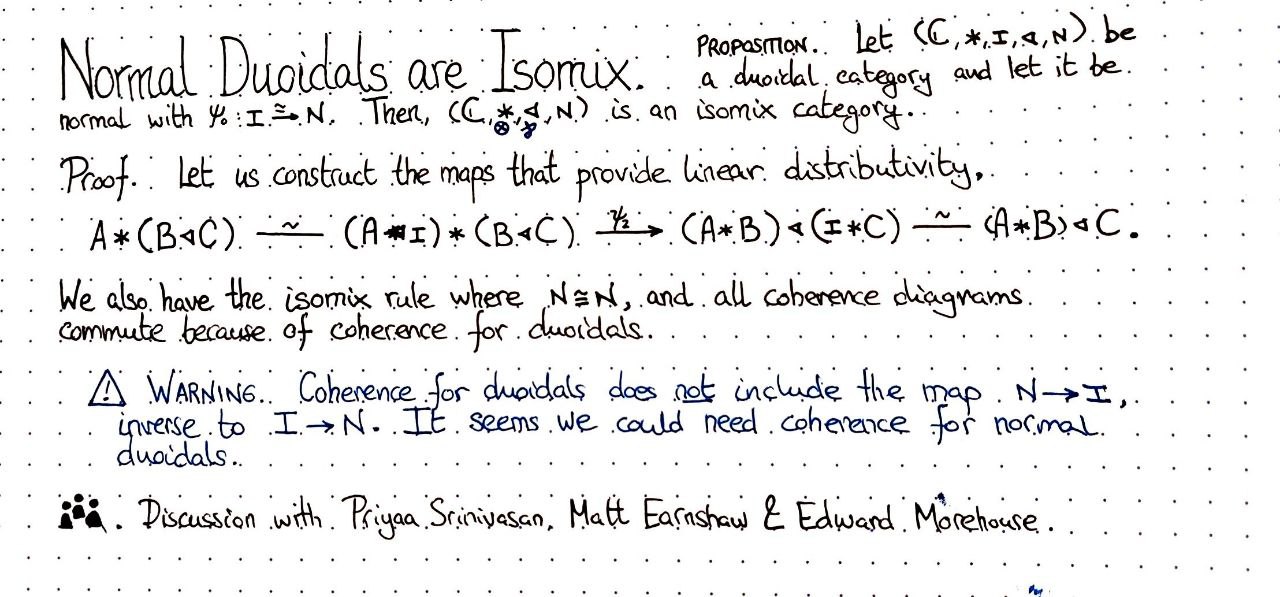 Normal Duoidals are Isomix.
PROPOSITION. Let (ℂ, *, I, ◁, N) be
a duoidal category and let it be
normal with ψ₀ : I ≅→ N. Then, (ℂ, *, ◁, N) is an isomix category.
⊗ ⅋
Proof. Let us construct the maps that provide linear distributivity.
A * (B ◁ C) ~ (A ◁ I) * (B ◁ C) —ψ₂→ (A * B) ◁ (I * C) ~ (A * B) ◁ C.
We also have the isomix rule where N ≅ N, and all coherence diagrams
commute because of coherence for duoidals.
⚠ WARNING. Coherence for duoidals does not include the map N → I,
inverse to I → N. It seems we could need coherence for normal
duoidals.
Discussion with Priyaa Srinivasan, Matt Earnshaw & Edward Morehouse.